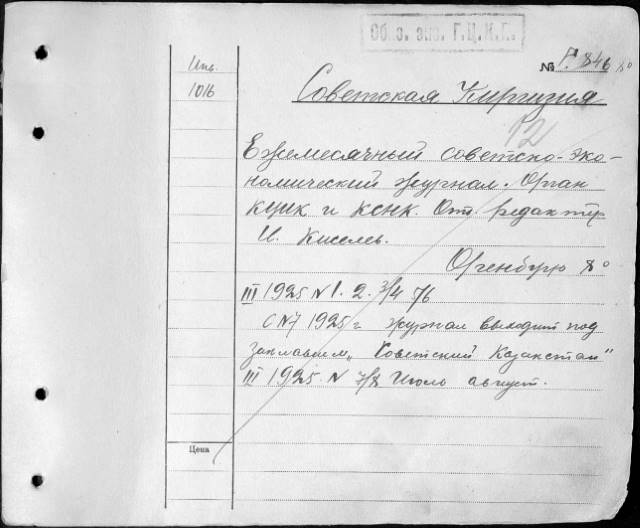 Обяз. экз. Г.Ц.К.П.
№ П. 846 80
Инв.
1016
Советская Киргизия
12
Ежемесячный советско-эко-
номический журнал. Орган
КЦИК и КСНК. Отв. редактор
И. Кисель.
Оренбург 8°
III 1925 N 1. 2. 3/4 5/6
С N 7 1925 г журнал выходит под
заглавием „Советский Казахстан"
III 1925 N 7/8 Июль август.
Цена